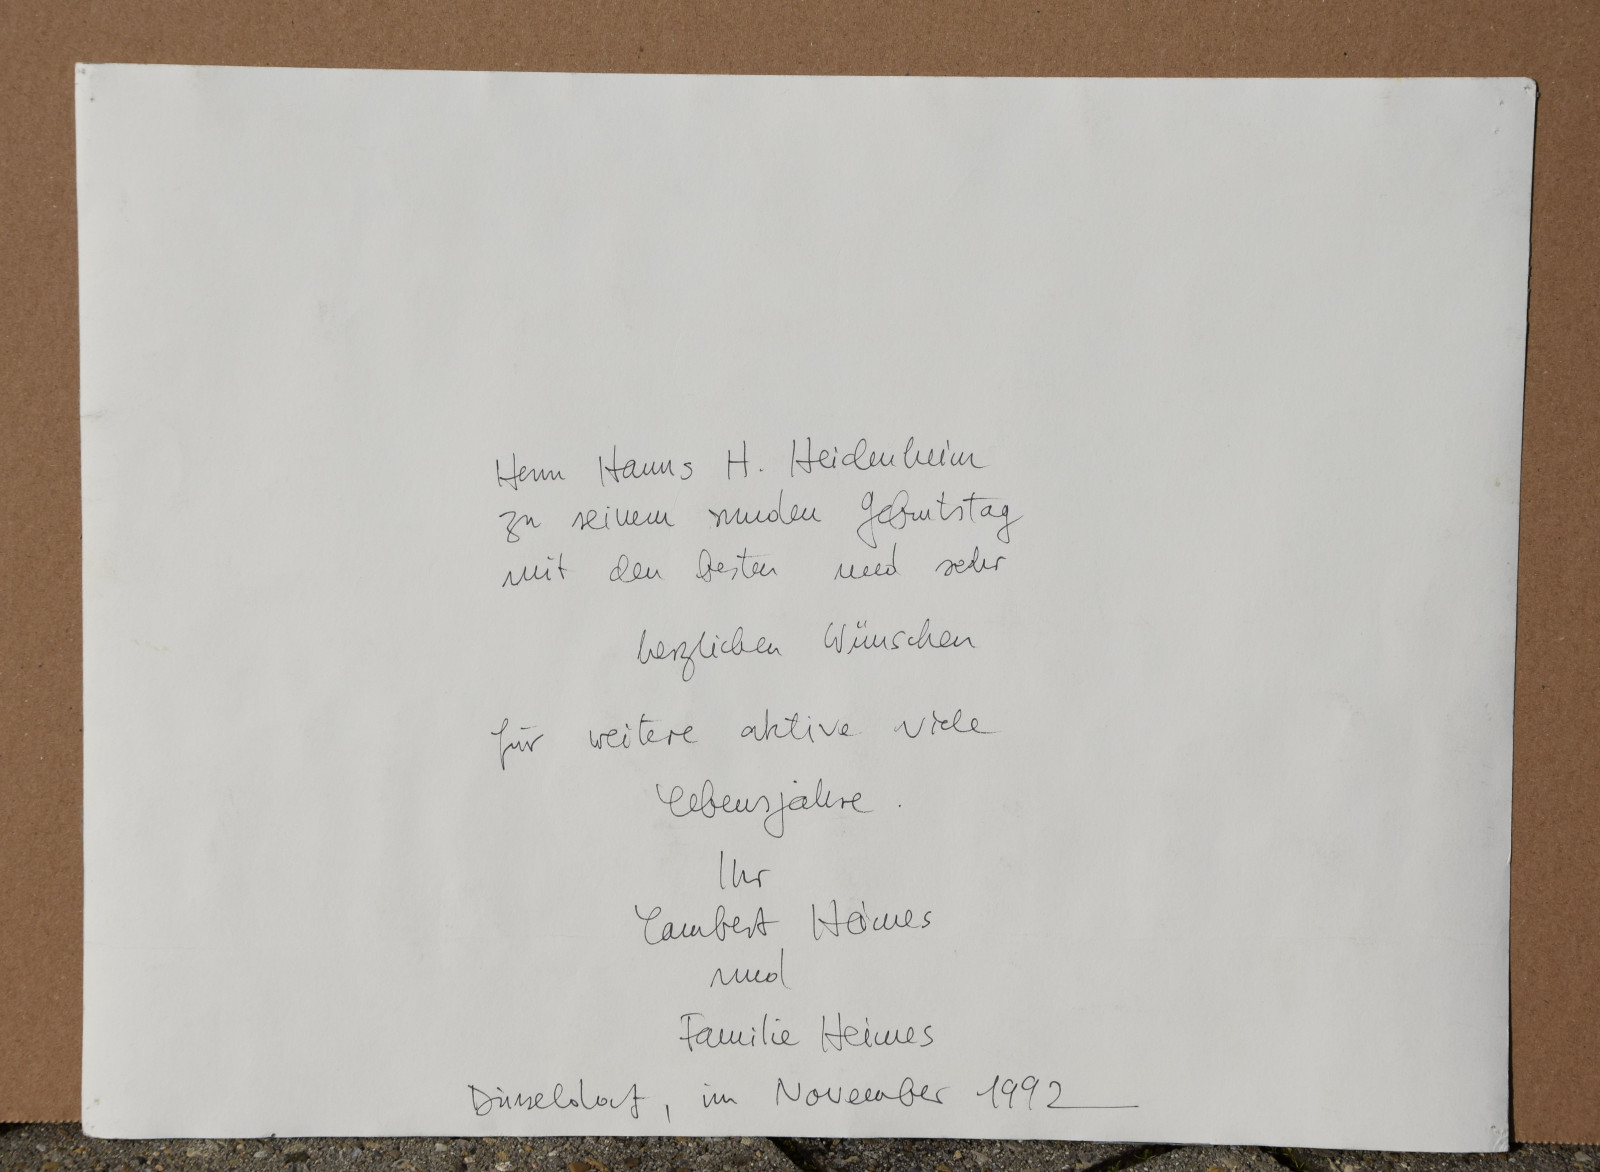 Herrn Hanns H. Heidenheim
zu seinem runden Geburtstag
mit den besten und sehr
herzlichen Wünschen
für weitere aktive viele
Lebensjahre.
Ihr
Lambert Heimes
und
Familie Heimes
Düsseldorf, im November 1992